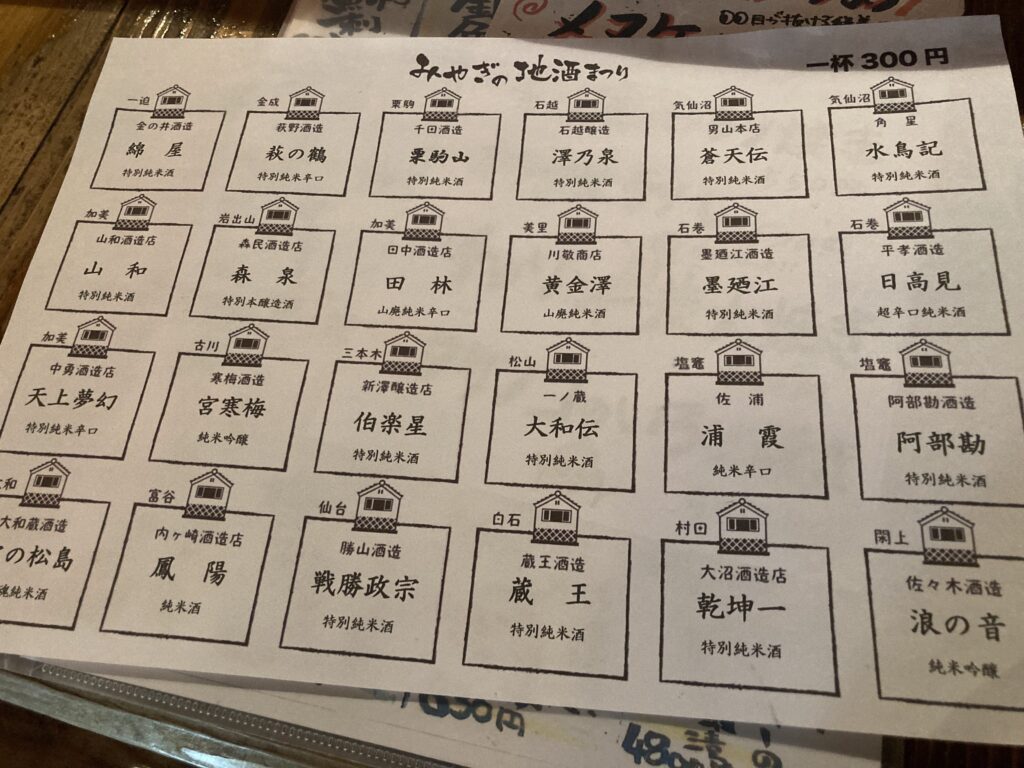 みやぎの地酒まつり
一杯300円
一迫
金の井酒造
綿屋
特別純米酒
金成
萩野酒造
萩の鶴
特別純米辛口
栗駒
千田酒造
栗駒山
特別純米酒
石越
石越醸造
澤乃泉
特別純米酒
気仙沼
男山本店
蒼天伝
特別純米酒
気仙沼
角星
水鳥記
特別純米酒
加美
山和酒造店
山和
特別純米酒
岩出山
森民酒造店
森泉
特別本醸造酒
加美
田中酒造店
田林
山廃純米辛口
美里
川敬商店
黄金澤
山廃純米酒
石巻
墨廼江酒造
墨廼江
特別純米酒
石巻
平孝酒造
日高見
超辛口純米酒
加美
中勇酒造店
天上夢幻
特別純米辛口
古川
寒梅酒造
宮寒梅
純米吟醸
三本木
新澤醸造店
伯楽星
特別純米酒
松山
一ノ蔵
大和伝
特別純米酒
塩竈
佐浦
浦霞
純米辛口
塩竈
阿部勘酒造
阿部勘
特別純米酒
和
大和蔵酒造
の松島
純米酒
富谷
内ヶ崎酒造店
鳳陽
純米酒
仙台
勝山酒造
戦勝政宗
特別純米酒
白石
蔵王酒造
蔵王
特別純米酒
村田
大沼酒造店
乾坤一
特別純米酒
閖上
佐々木酒造
浪の音
純米吟醸